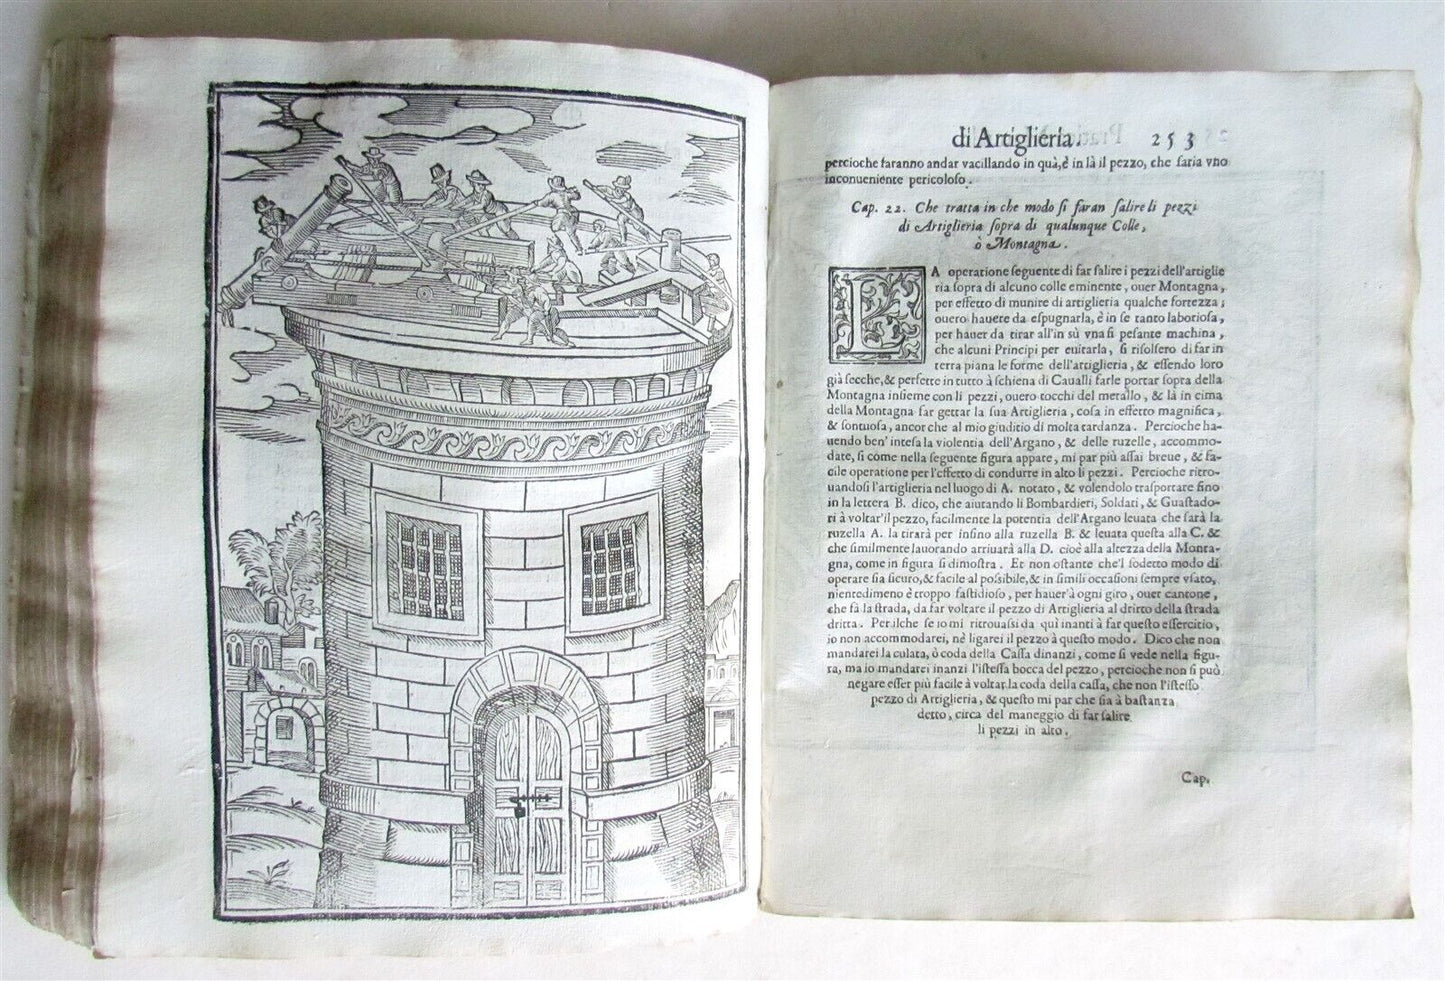 di Artiglieria. 253
percioche faranno andar vacillando in quà, è in là il pezzo, che saria vno
inconueniente pericoloso.
Cap. 22. Che tratta in che modo si faran salire li pezzi
di Artiglieria sopra di qualunque Colle,
ò Montagna.
LA operatione seguente di far salire i pezzi dell'artiglie
ria sopra di alcuno colle eminente, ouer Montagna,
per effetto di munire di artiglieria qualche fortezza;
ouero hauere da espugnarla, è in se tanto laboriosa,
per hauer da tirar all'in sù vna si pesante machina,
che alcuni Principi per euitarla, si risolsero di far in
terra piana le forme dell'artiglieria, & essendo loro
già secche, & perfette in tutto à schiena di Caualli farle portar sopra della
Montagna insieme con li pezzi, ouero tocchi del metallo, & là in cima
della Montagna far gettar la sua Artiglieria, cosa in effetto magnifica,
& sontuosa, ancor che al mio giuditio di molta tardanza. Percioche ha-
uendo ben' intesa la violentia dell'Argano, & delle ruzelle, accommo-
date, si come nella seguente figura appare, mi par più assai breue, & fa-
cile operatione per l'effetto di condurre in alto li pezzi. Percioche ritro-
uandosi l'artiglieria nel luogo di A. notato, & volendolo trasportare fino
in la lettera B. dico, che aiutando li Bombardieri, Soldati, & Guastado-
ri à voltar'il pezzo, facilmente la potentia dell'Argano leuata che sarà la
ruzella A. la tirarà per insino alla ruzella B. & leuata questa alla C. &
che similmente lauorando arriuarà alla D. cioè alla altezza della Monta-
gna, come in figura si dimostra. Et non ostante che'l sodetto modo di
operare sia sicuro, & facile al possibile, & in simili occasioni sempre vsato,
nientedimeno è troppo fastidioso, per hauer'à ogni giro, ouer cantone,
che fà la strada, da far voltare il pezzo di Artiglieria al dritto della strada
dritta. Perilche se io mi ritrouassi da quì inanti à far questo essercitio,
io non accommodarei, nè ligarei il pezzo à questo modo. Dico che non
mandarei la culata, ò coda della Cassa dinanzi, come si vede nella figu-
ra, ma io mandarei inanzi l'istessa bocca del pezzo, percioche non si può
negare esser più facile à voltar la coda della cassa, che non l'istesso
pezzo di Artiglieria, & questo mi par che sia à bastanza
detto, circa del maneggio di far salire
li pezzi in alto.
Cap.